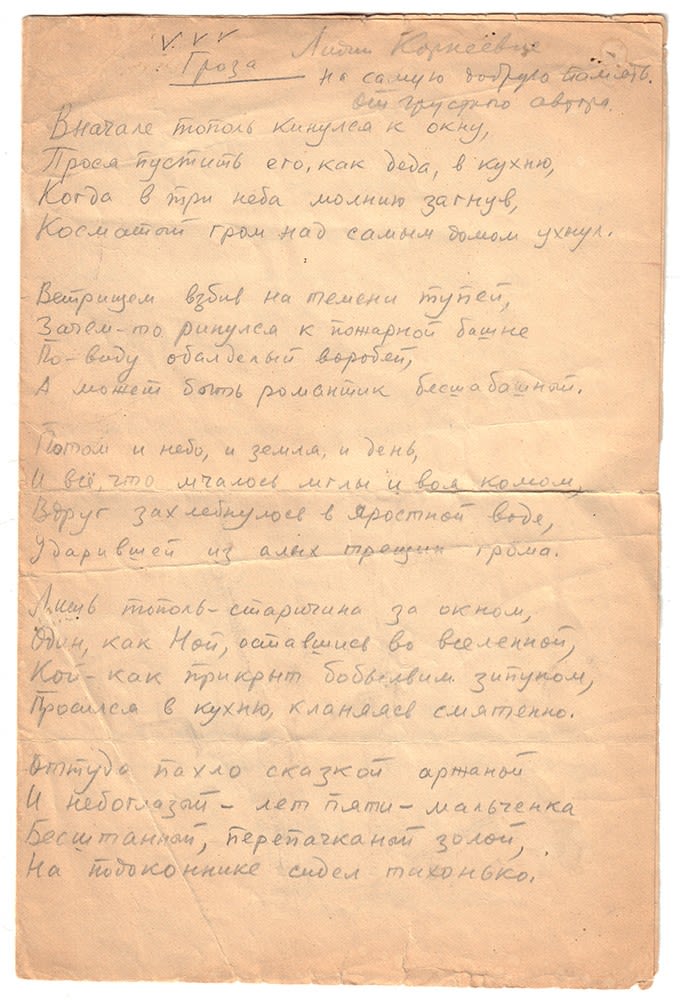 Гроза Лидии Корнеевне
на самую добрую память.
от грустного автора.
Вначале тополь кинулся к окну,
Прося пустить его, как деда, в кухню,
Когда в три неба молнию загнув,
Косматый гром над самым домом ухнул.
Ветрищем взбив на темени тупей,
Зачем-то ринулся к пожарной башне
По-виду обалделый воробей,
А может быть романтик бесшабашный.
Потом и небо, и земля, и день,
И всё, что мчалось мглы и воя комом,
Вдруг захлебнулось в яростной воде,
Ударившей из алых трещин грома.
Лишь тополь-старичина за окном,
Один, как Ной, оставшись во вселенной,
Кой-как прикрыт бобыльим зипуном,
Просился в кухню, кланяясь смятенно.
Оттуда пахло сказкой аржаной
И небоглазый – лет пяти – мальченка
Бесштанный, перепачканый золой,
На подоконнике сидел тихонько.